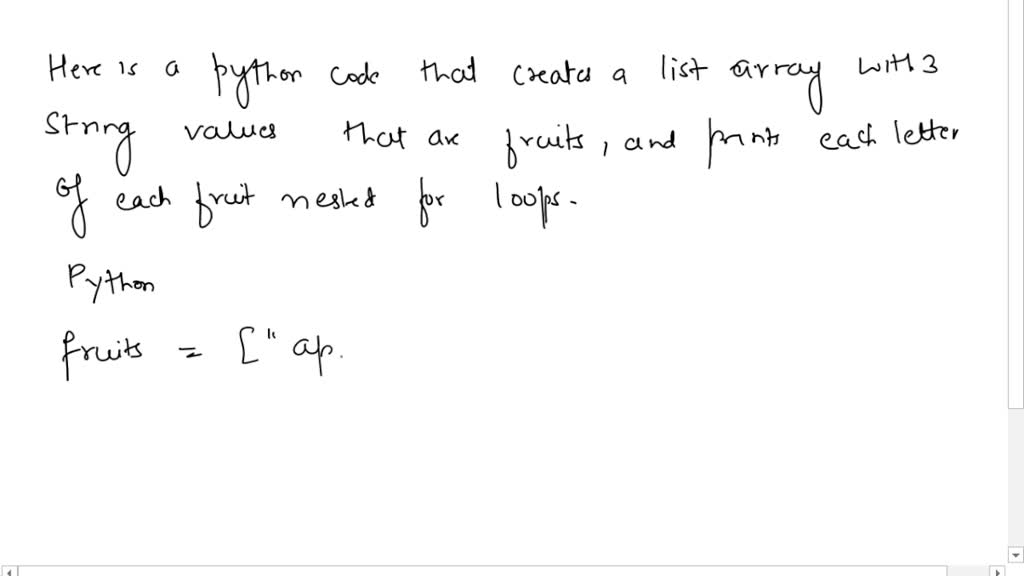 Here is a python code that creates a list array with 3
String values that are fruits, and prints each letter
Of each fruit nested for loops.
Python
fruits = [" ap.